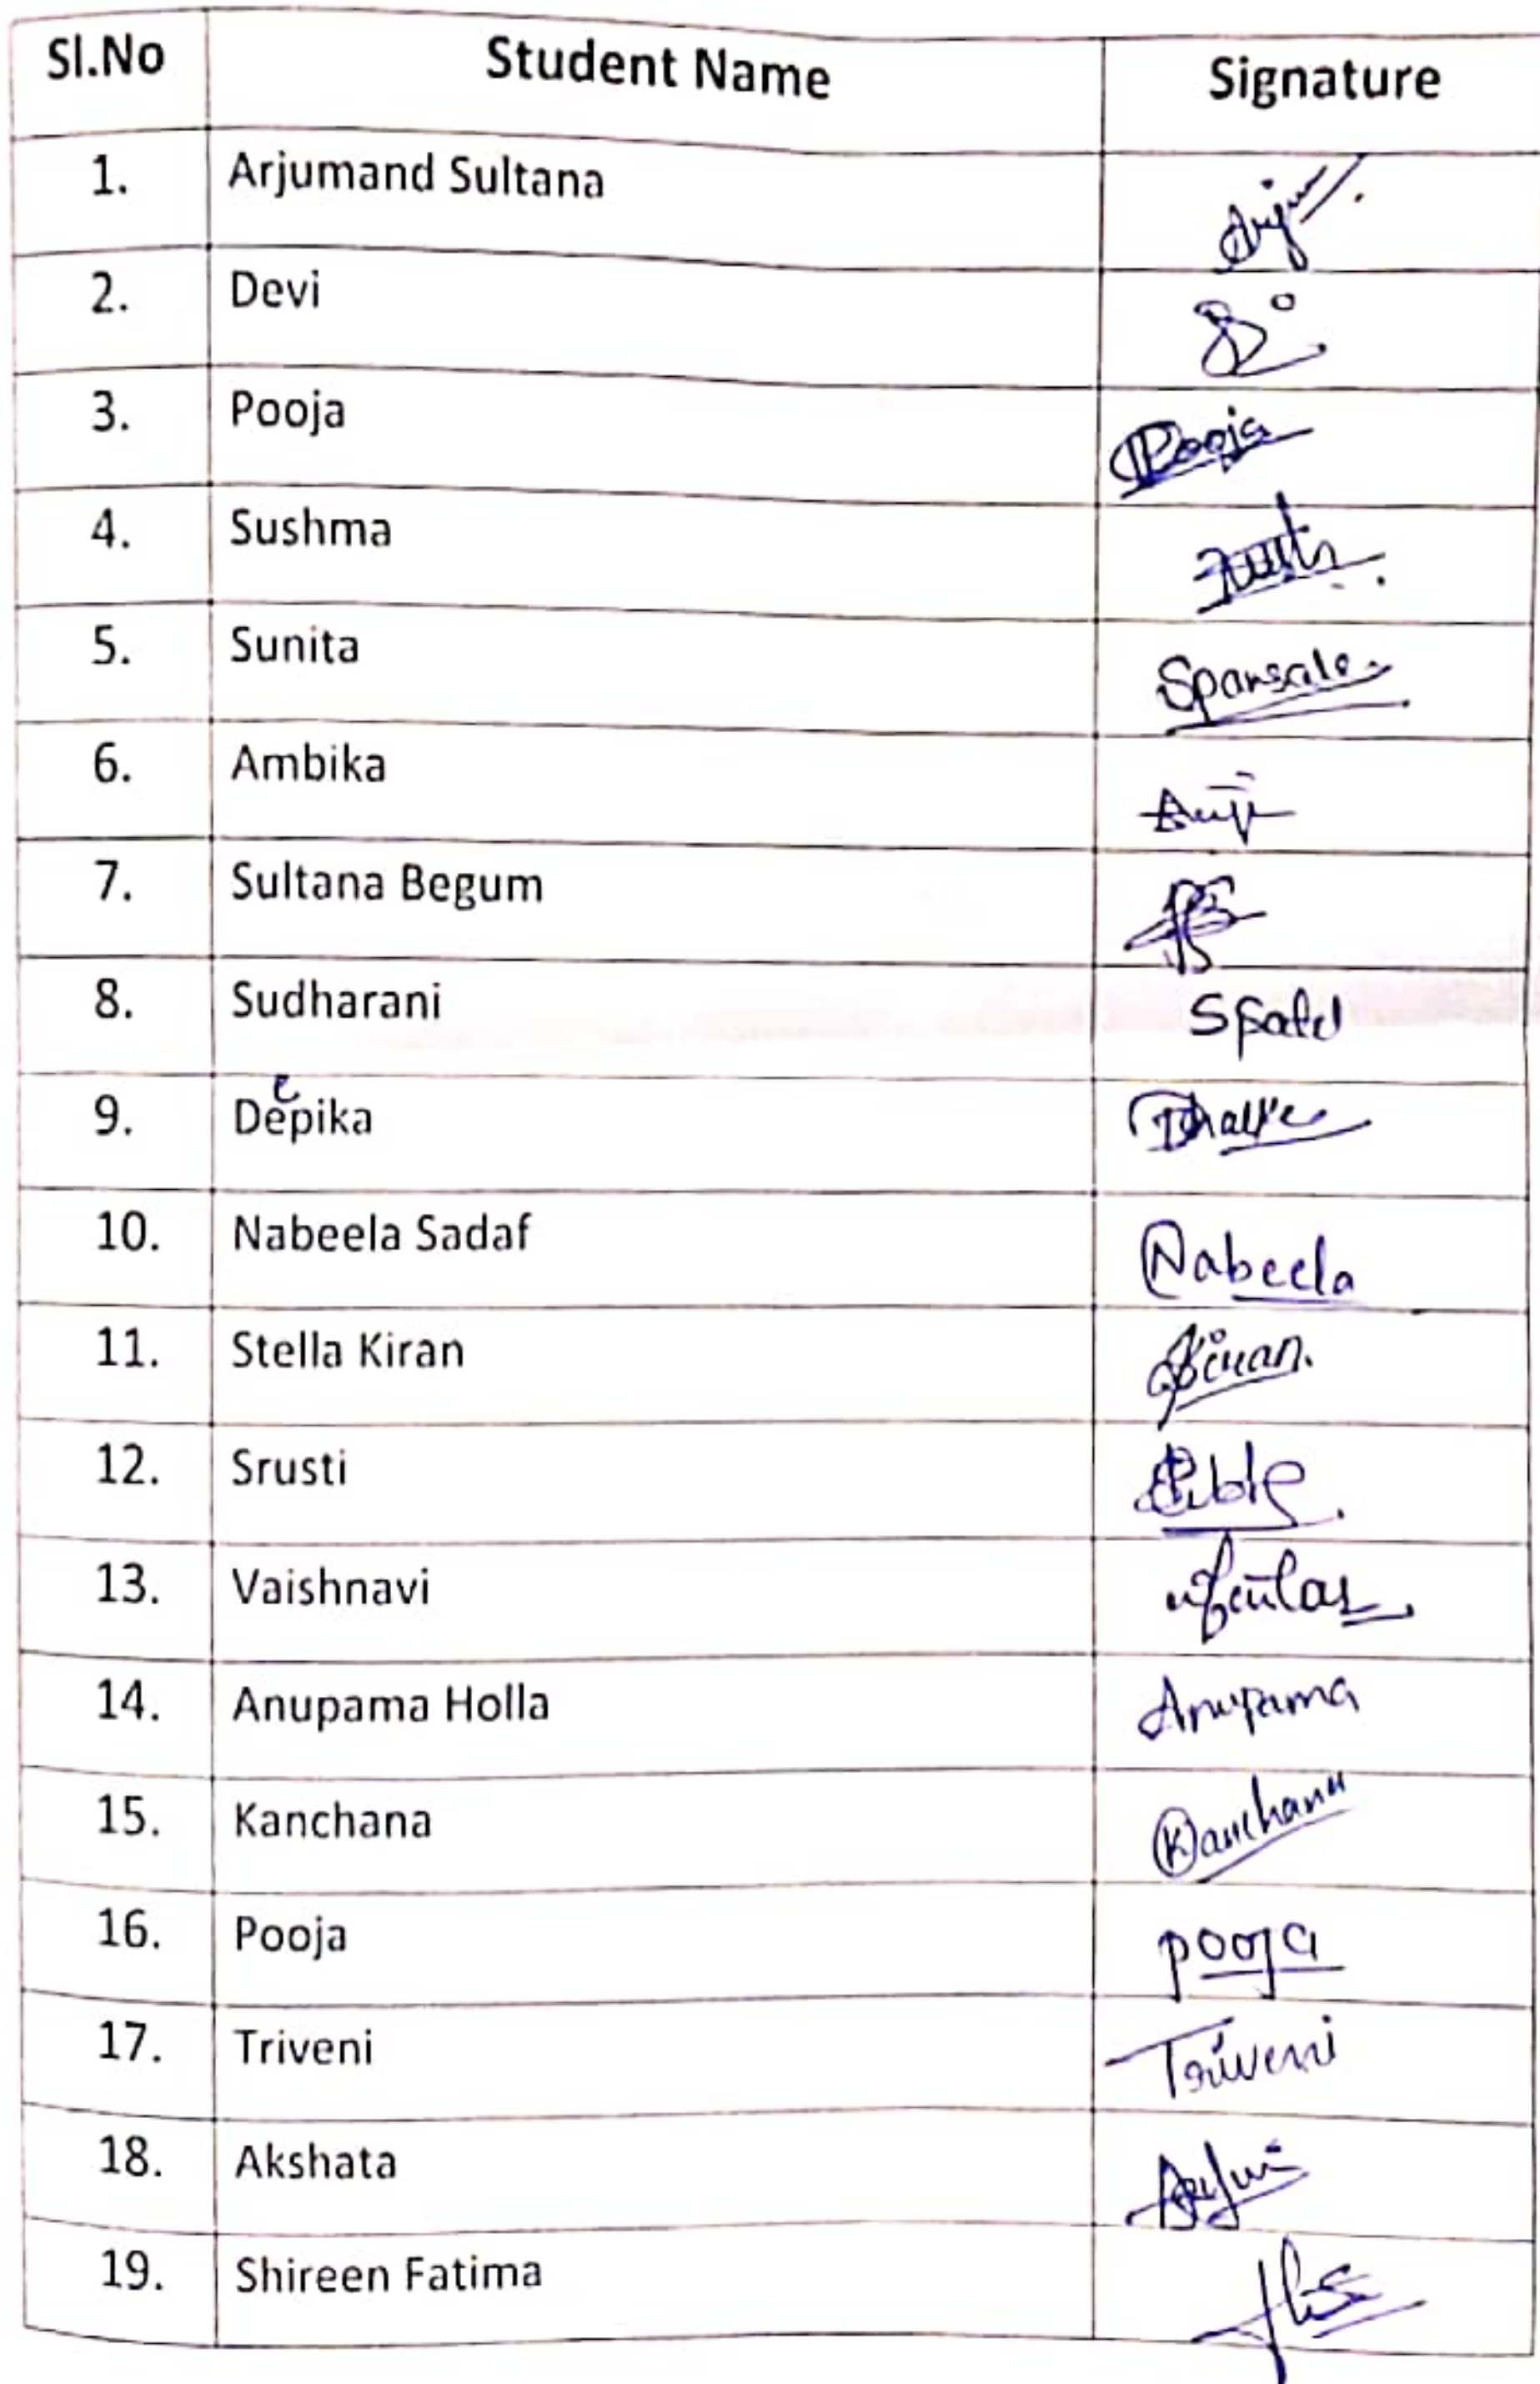 Sl.No Student Name Signature
1. Arjumand Sultana
2. Devi
3. Pooja Pooja
4. Sushma
5. Sunita
6. Ambika
7. Sultana Begum
8. Sudharani
9. Deepika
10. Nabeela Sadaf Nabeela
11. Stella Kiran Kiran.
12. Srusti
13. Vaishnavi
14. Anupama Holla Anupama
15. Kanchana Kanchana
16. Pooja pooja
17. Triveni Triveni
18. Akshata
19. Shireen Fatima